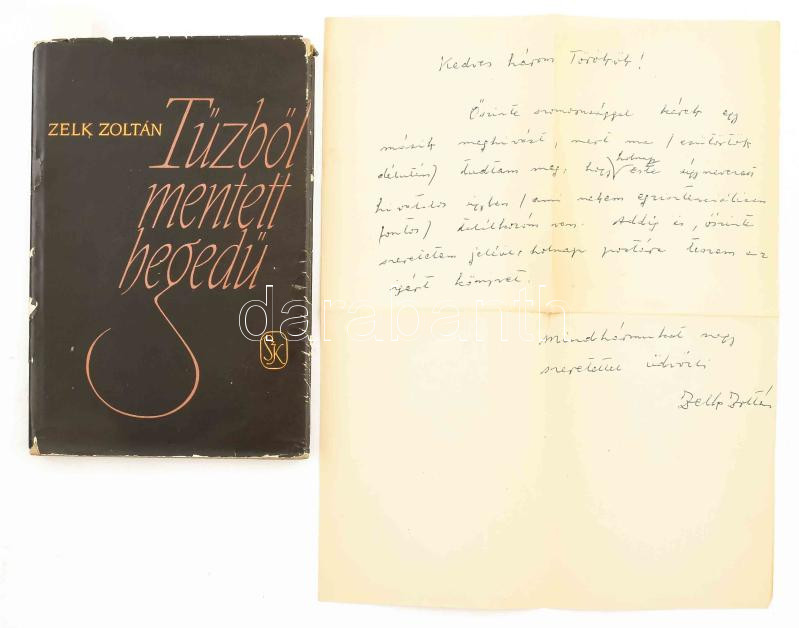 ZELK ZOLTÁN
Tűzből
mentett
hegedű
SZK
Kedves három Törökök!
Őszinte szomorúsággal kérek egy
másik meghívást, mert ma / csütörtök
délután) tudtam meg, hogy holnap este úgynevezett
hivatalos ügyben / ami nekem egzisztenciálisan
fontos) találkozóm van. Addig is, őszinte
szeretetem jeléül, holnap postára teszem az
ígért könyvet.
Mindhármukat nagy
szeretettel üdvözli
Zelk Zoltán
darabanth